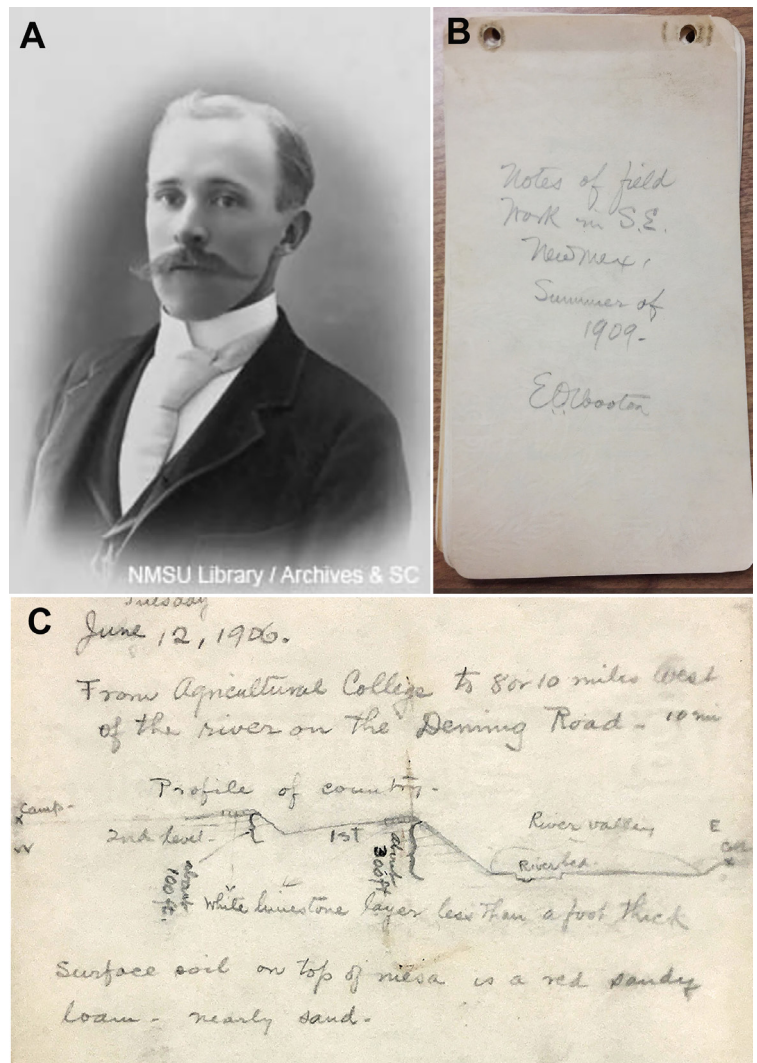 A
NMSU Library / Archives & SC
B
Notes of field
Work in S.E.
New Mex.
Summer of
1909.
E.O. Wooton
C
Tuesday
June 12, 1906.
From Agricultural College to 8 or 10 miles West
of the river on the Deming Road - 10 mi
Profile of country.
Camp-
x
W
2nd level-
about
100 ft.
1st
about
300 ft
River valley
River bed
E
x
White limestone layer less than a foot thick
Surface soil on top of mesa is a red sandy
loam - nearly sand -